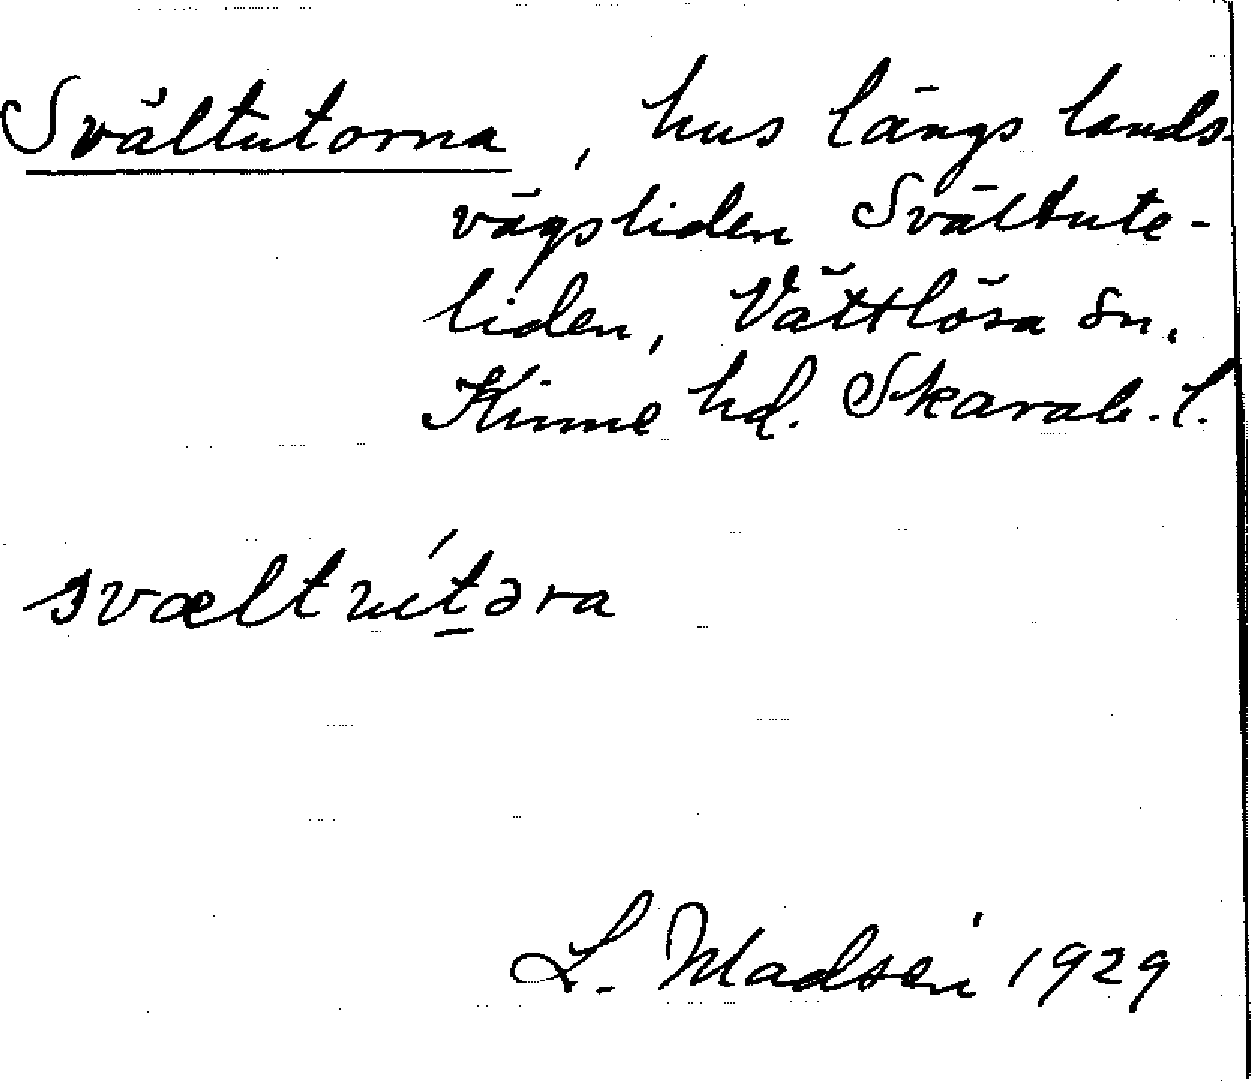 Svältutorna, hus längs lands-
vägsliden Svältute-
liden, Vättlösa sn.
Kinne hd. Skarab. l.
svæltút̠əra
L. Madsén 1929